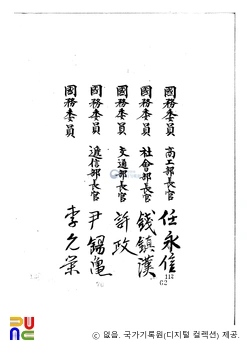 國務委員 商工部長官 任永信
國務委員 社會部長官 錢鎮漢
國務委員 交通部長官 許政
國務委員 遞信部長官 尹錫龜
國務委員 李允榮
112
62
ⓒ 없음. 국가기록원(디지털 컬렉션) 제공.